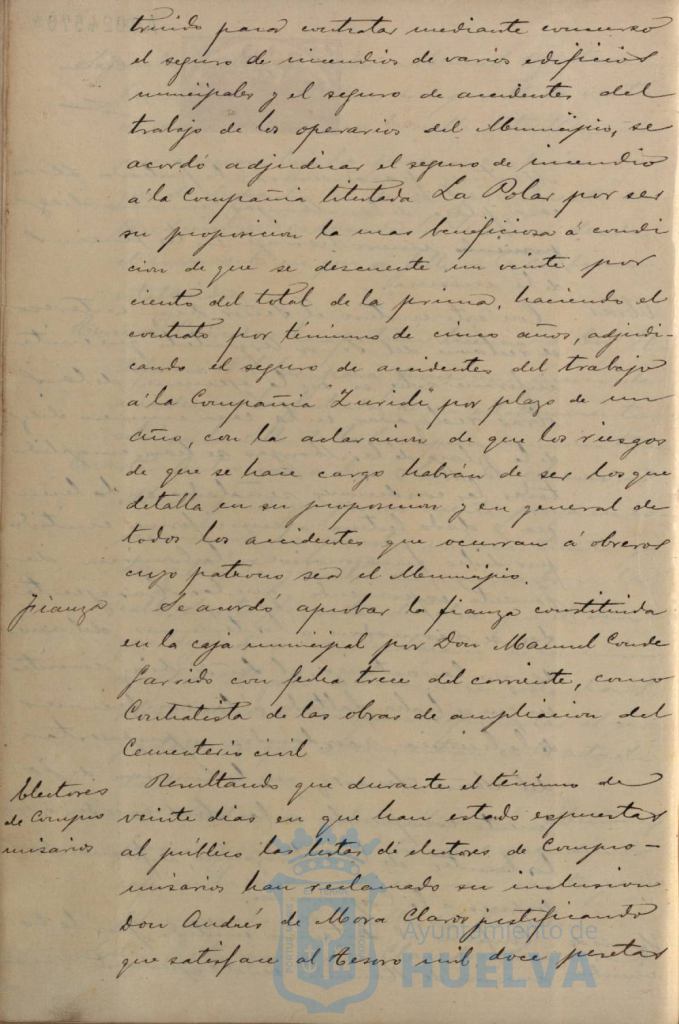 truido para contratar mediante concurso
el seguro de incendios de varios edificios
municipales y el seguro de accidentes del
trabajo de los operarios del Municipio, se
acordó adjudicar el seguro de incendio
á la Compañia titulada La Polar por ser
su proposicion la mas beneficiosa á condi
cion de que se descuente un veinte por
ciento del total de la prima, haciendo el
contrato por término de cinco años, adjudi-
cando el seguro de accidentes del trabajo
á la Compañia "Zurich" por plazo de un
año, con la aclaracion de que los riesgos
de que se hace cargo habrán de ser los que
detalla en su proposicion y en general de
todos los accidentes que ocurran á obreros
cuyo patrono sea el Municipio.
Fianza
Se acordó aprobar la fianza constituida
en la caja municipal por Don Manuel Conde
Garrido con fecha trece del corriente, como
Contratista de las obras de ampliacion del
Cementerio civil
Electores
de Compro
misarios
Resultando que durante el término de
veinte dias en que han estado expuestas
al público las listas de electores de Compro-
misarios han reclamado su inclusion
Don Andrés de Mora Claros justificando
que satisface al Tesoro mil doce pesetas
Ayuntamiento de
HUELVA